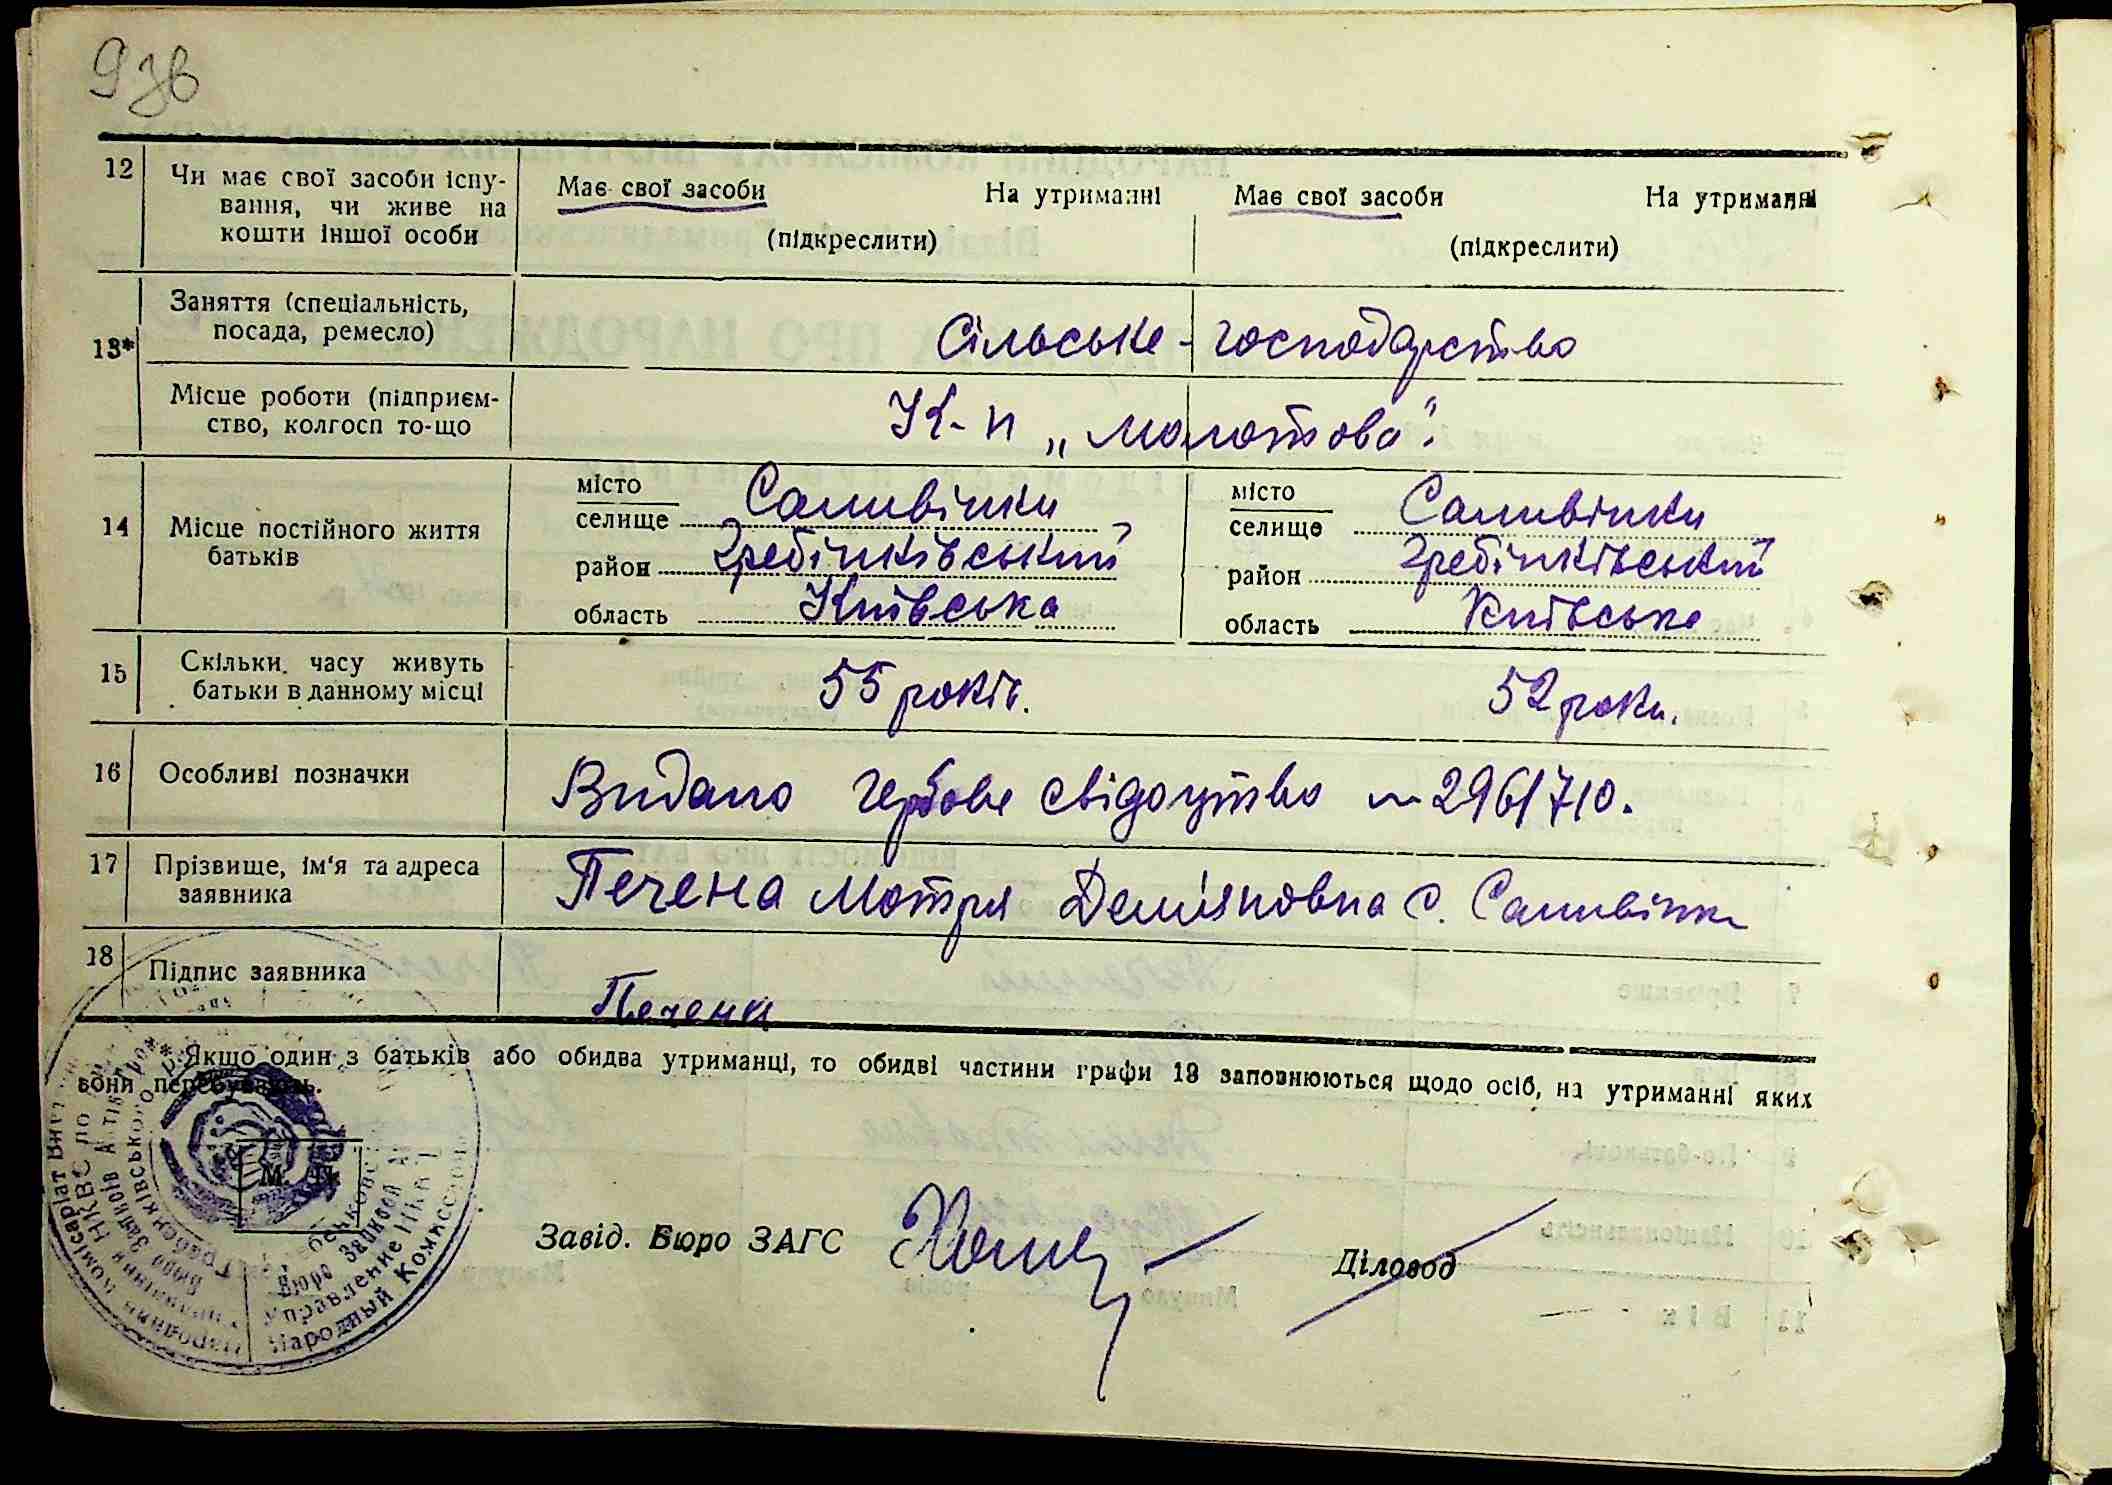 93в
12 Чи має свої засоби існу- Має свої засоби На утриманні Має свої засоби На утриманні
вання, чи живе на
кошти іншої особи (підкреслити) (підкреслити)
13* Заняття (спеціальність,
посада, ремесло) Сільське-господарство
Місце роботи (підприєм-
ство, колгосп то-що К-п „Молотова".
14 Місце постійного життя
батьків
місто
селище Саливінки
район Гребінківський
область Київська
місто
селище Саливінки
район Гребінківський
область Київська
15 Скільки часу живуть
батьки в данному місці 55 років. 52 роки.
16 Особливі позначки Видано гербове свідоцтво № 2961710.
17 Прізвище, ім'я та адреса
заявника Печена Мотря Дем'яновна с. Саливінки
18 Підпис заявника Печена
* Якщо один з батьків або обидва утриманці, то обидві частини графи 13 заповнюються щодо осіб, на утриманні яких
вони перебувають.
М. П.
Завід. Бюро ЗАГС Діловод